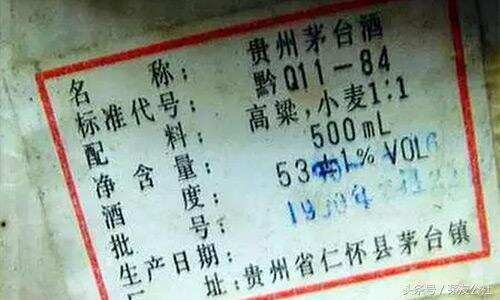 名称：贵州茅台酒
标准代号：黔Q11-84
配料：高粱,小麦1:1
净含量：500mL
酒度：53±1% VOL
批号：
生产日期：
址:贵州省仁怀县茅台镇
头条号